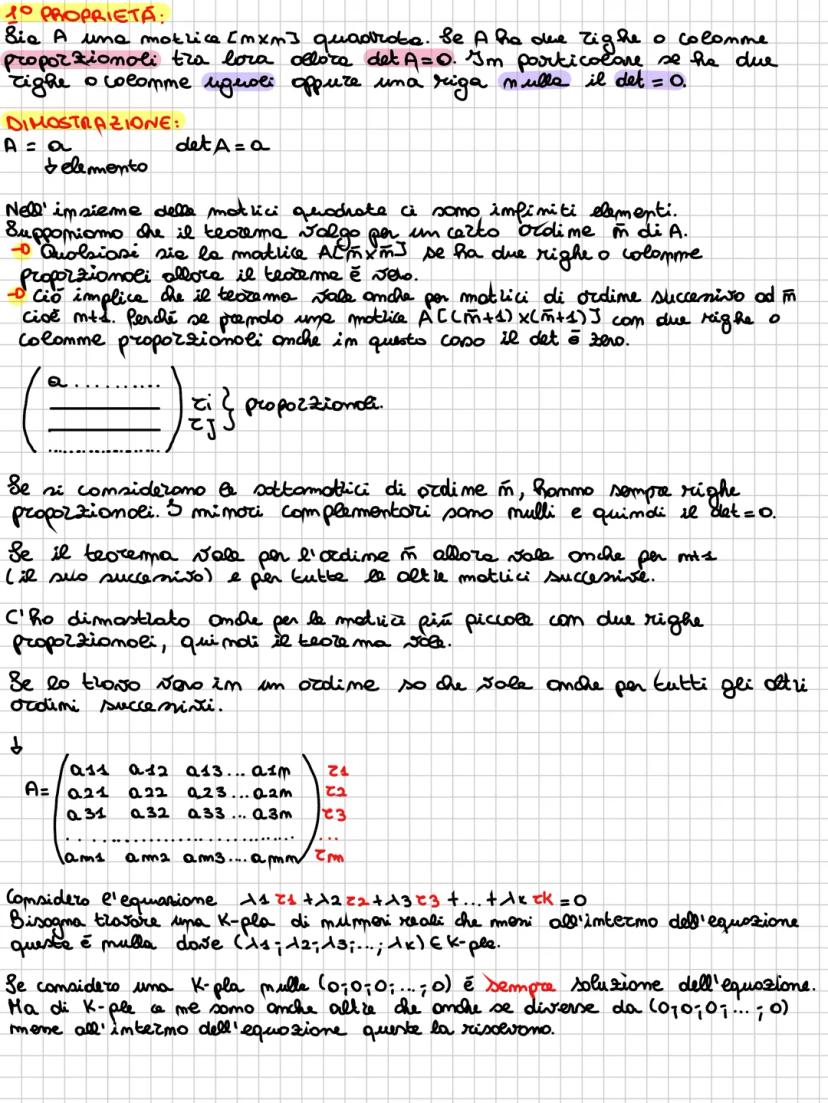 1° PROPRIETÁ:
Sia A una matrice [mxm] quadrata. Se A ha due righe o colonne
proporzionali tra loro allora det A=0. In particolare se ha due
righe o colonne uguali oppure una riga nulla il det = 0.
DIMOSTRAZIONE:
A = a det A = a
↓ elemento
Nell'insieme delle matrici quadrate ci sono infiniti elementi.
Supponiamo che il teorema valga per un certo ordine m̄ di A.
→ Qualsiasi sia la matrice A[m̄xm̄] se ha due righe o colonne
proporzionali allora il teorema é vero.
→ Ció implica che il teorema vale anche per matrici di ordine successivo ad m̄
cioé m+1. Perché se prendo una matrice A[(m̄+1)x(m̄+1)] con due righe o
colonne proporzionali anche in questo caso il det é zero.
a ..........
ri } proporzionali.
rj
Se si considerano le sottomatrici di ordine m̄, hanno sempre righe
proporzionali. I minori complementari sono nulli e quindi il det=0.
Se il teorema vale per l'ordine m̄ allora vale anche per m+1
(il suo successivo) e per tutte le altre matrici successive.
C'ho dimostrato anche per la matrice piú piccola con due righe
proporzionali, quindi il teorema vale.
Se lo trovo vero in un ordine so che vale anche per tutti gli altri
ordini successivi.
↓
a11 a12 a13 ... a1m r1
A= a21 a22 a23 ... a2m r2
a31 a32 a33 ... a3m r3
........................ ...
am1 am2 am3 ... amm rm
Considero l'equazione λ1 r1 + λ2 r2 + λ3 r3 + ... + λk rk = 0
Bisogna trovare una K-pla di numeri reali che messi all'interno dell'equazione
questa é nulla dove (λ1; λ2; λ3; ...; λk) ∈ K-pla.
Se considero una K-pla nulla (0;0;0; ... ;0) é sempre soluzione dell'equazione.
Ma di K-ple ce ne sono anche altre che anche se diverse da (0;0;0; ... ;0)
messe all'interno dell'equazione queste la risolvono.